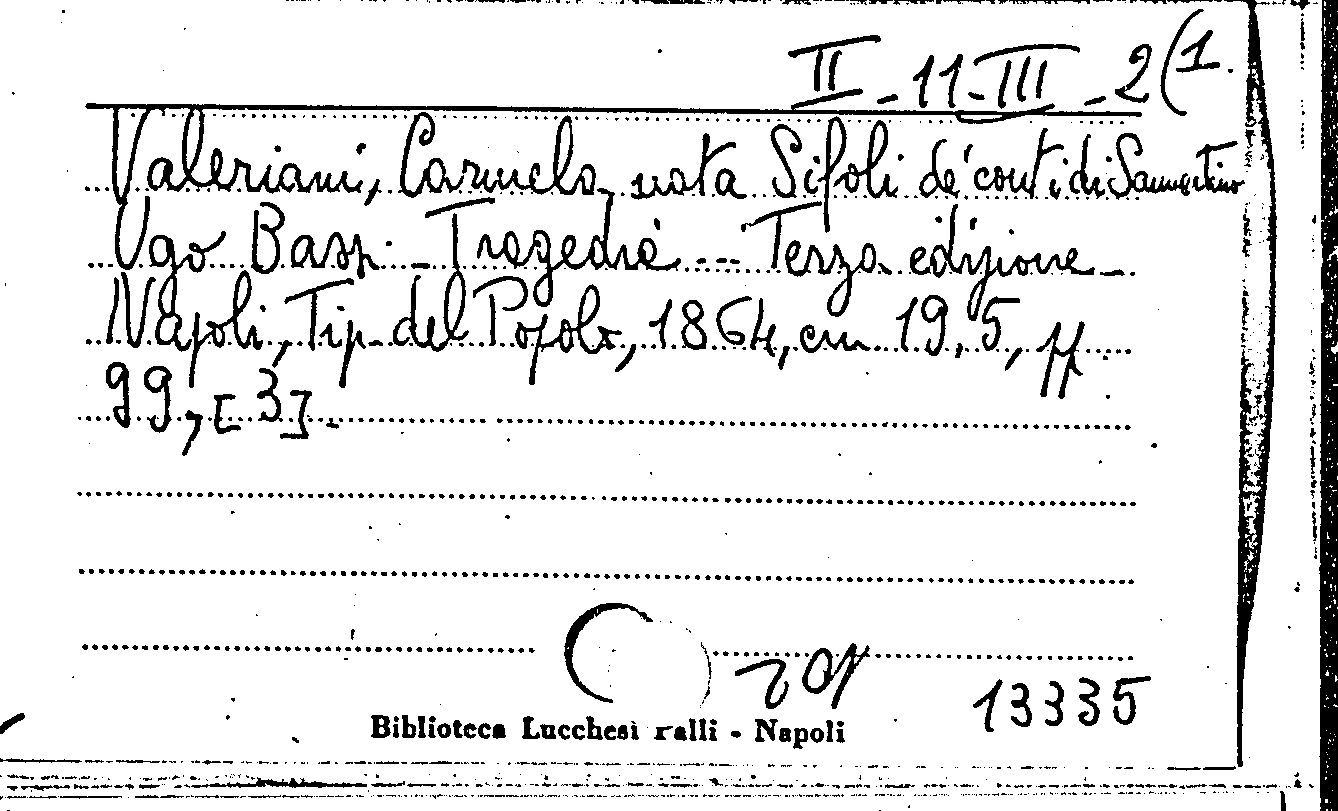 II - 11 - III - 2 (1.
Valeriani, Carmela, nata Sifoli de' conti di Sanmartino
Ugo Bassi - Tragedia ... Terza edizione -
Napoli, Tip. del Popolo, 1864, cm 19,5, pp.
99, [3].
13335
Biblioteca Lucchesi Palli - Napoli